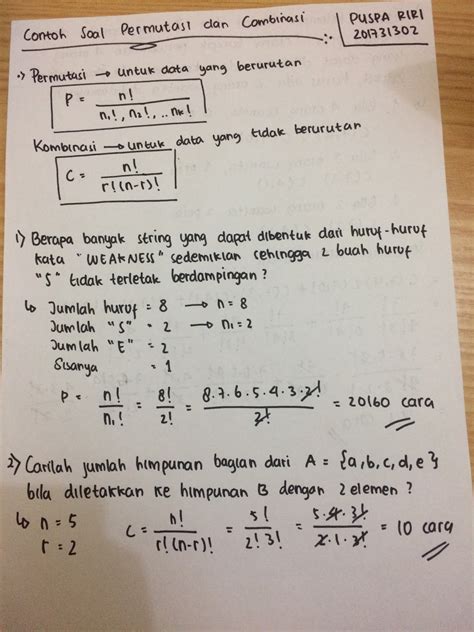 Contoh Soal Permutasi dan Combinasi
PUSPA RIRI
201731302
•) Permutasi → untuk data yang berurutan
P = n! / n₁!, n₂!, ..nₖ!
Kombinasi → untuk data yang tidak berurutan
C = n! / r!(n-r)!
1) Berapa banyak string yang dapat dibentuk dari huruf-huruf
kata "WEAKNESS" sedemikian sehingga 2 buah huruf
"S" tidak terletak berdampingan ?
↳ Jumlah huruf = 8 → n = 8
Jumlah "S" = 2 → n₁ = 2
Jumlah "E" = 2
Sisanya = 1
P = n! / n₁! = 8! / 2! = 8.7.6.5.4.3.2! / 2! = 20160 cara
2) Carilah jumlah himpunan bagian dari A = {a,b,c,d,e}
bila diletakkan ke himpunan B dengan 2 elemen ?
↳ n = 5
r = 2
C = n! / r!(n-r)! = 5! / 2! 3! = 5.4.3! / 2.1.3! = 10 cara